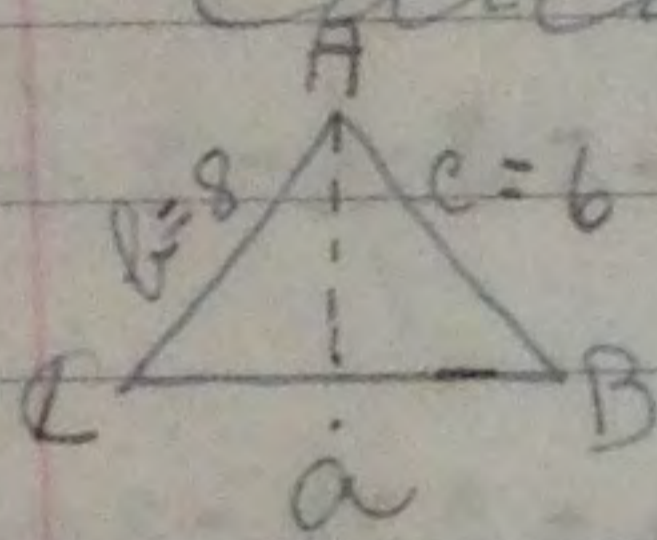 A
b=8 c=6
C B
a